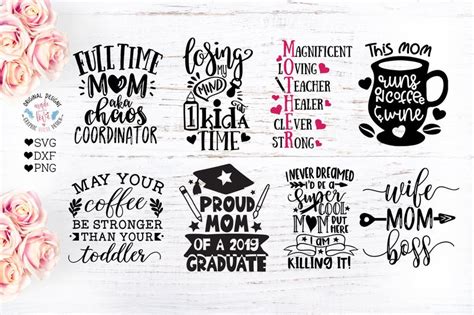 ORIGINAL DESIGNS
SVG
DXF
PNG
FULL TIME
MOM
aka
chaos
COORDINATOR
losing
MY
MIND
1 kid a
TIME
MAGNIFICENT
LOVING
TEACHER
HEALER
CLEVER
STRONG
MOTHER
THIS MOM
runs
ON
COFFEE
& wine
MAY YOUR
coffee
BE STRONGER
THAN YOUR
toddler
PROUD
MOM
OF A 2019
GRADUATE
I NEVER DREAMED
I'D BE A
Super
COOL
MOM BUT
HERE
I AM
KILLING IT!
wife
MOM
boss